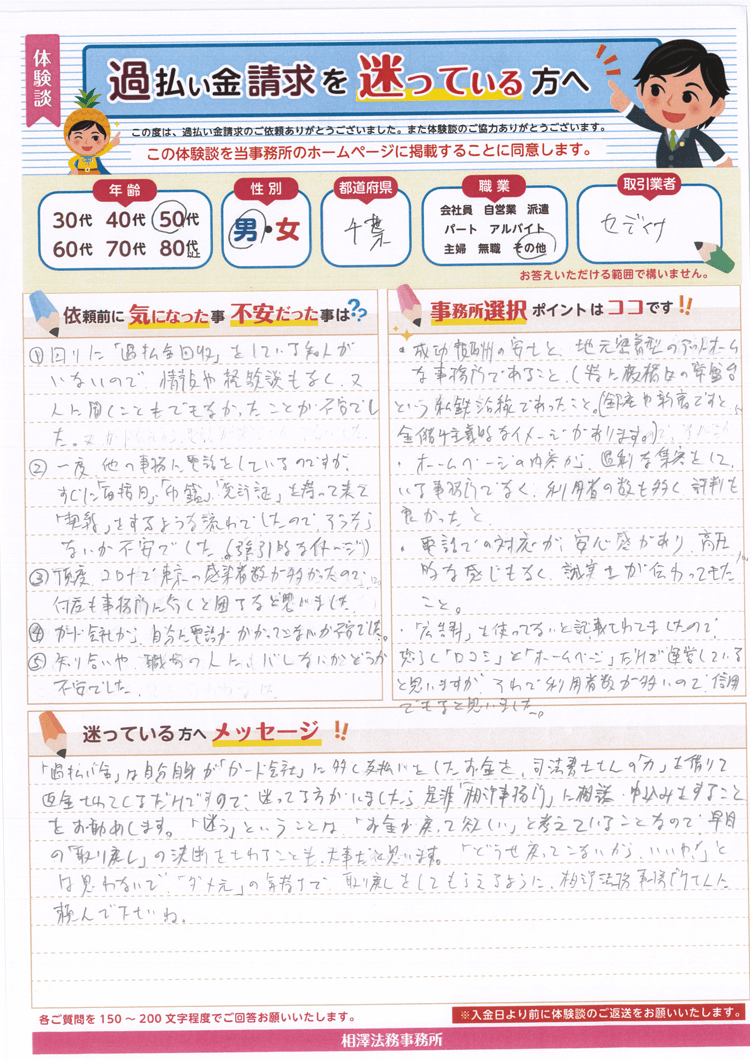 体験談
過払い金請求を迷っている方へ
この度は、過払い金請求のご依頼ありがとうございました。また体験談のご協力ありがとうございます。
この体験談を当事務所のホームページに掲載することに同意します。
年齢
30代 40代 50代
60代 70代 80代以上
性別
男・女
都道府県
千葉
職業
会社員 自営業 派遣
パート アルバイト
主婦 無職 その他
取引業者
セディナ
お答えいただける範囲で構いません。
依頼前に気になった事 不安だった事は??
①回りに「過払金回収」をしている知人が
いないので 情報や経験談もなく、又
人に聞くこともできなかったことが不安でし
た。
②一度 他の事務に電話をしているのですが、
すぐに「面接日」「印鑑」「免許証」を持って来て
「契約」をするような流れでしたので、
ないか不安でした。(強引的なイメージ)
③頂度コロナで東京の感染者数が多かったので、
何度も事務所に行くと困てると思いました
④カード会社から、自分に電話がかかってこないか不安でした。
⑤知り合いや、職場の人に、バレしないかどうか
不安でした。
事務所選択ポイントはココです!!
・成功報酬の安さと、地元密着型のアットホーム
な事務所であること、(特に板橋区の常盤台
という私鉄沿線であったこと。(銀座や新宿ですと、
金儲け主義的なイメージがあります。)
・ホームページの内容が、過剰な集客をして
いる事務所でなく、利用者の数も多く評判も
良かったと
・電話での対応が、安心感があり、高圧
的な感じもなく、誠実さが伝わってきた
こと。
・「広告料」を使ってないと記載されてましたので、
恐らく「口コミ」と「ホームページ」だけで運営している
と思いますが、それで利用者数が多いので、信用
できると思いました。
迷っている方へメッセージ!!
「過払い金」は自分自身が「カード会社」に多く支払いをしたお金を、司法書士さんの「力」を借りて
返金されてくるだけですので、迷ってる方がいましたら是非「相澤事務所」に相談・申込みをすること
をお勧めします。「迷う」ということは、「お金が戻って欲しい」と考えていることなので、早目
の「取り戻し」の決断をされることも、大事だと思います。「どうせ戻ってこないから、いいや!」と
は思わないで、「ダメ元」の気持ちで、取り戻しをしてもらえるように、相澤法務事務所さんに
頼んで下さいね。
各ご質問を150～200文字程度でご回答お願いいたします。
※入金日より前に体験談のご返送をお願いいたします。
相澤法務事務所